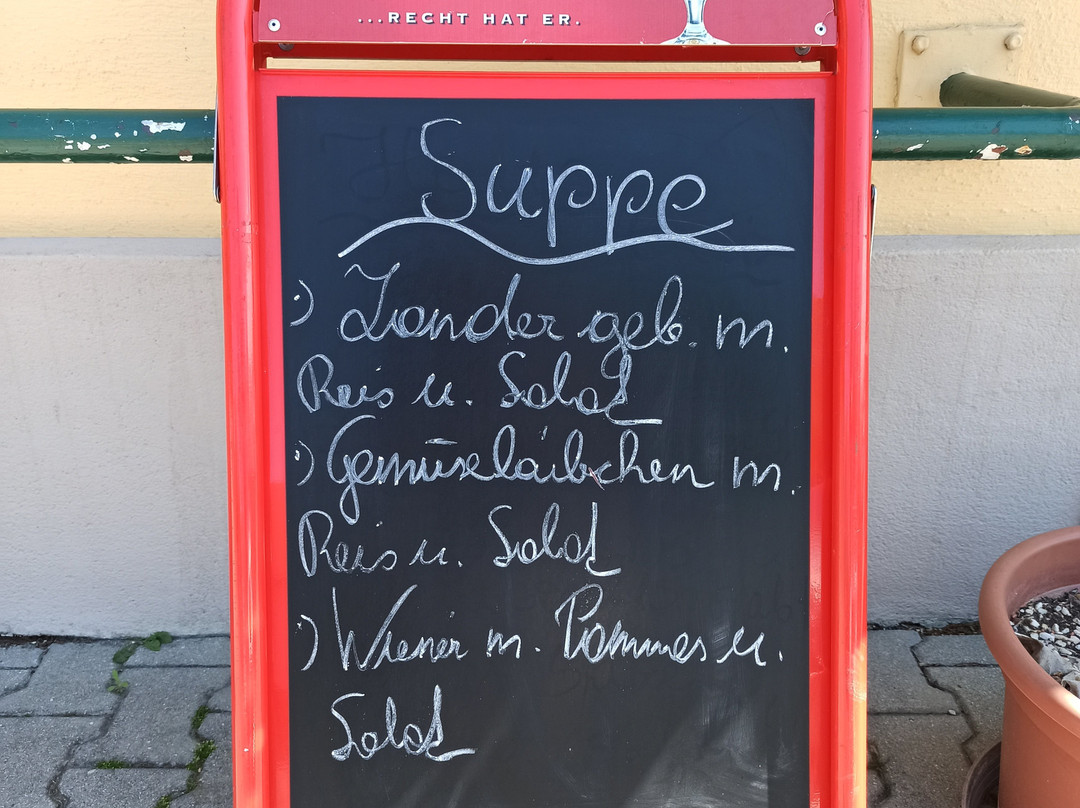 ...RECHT HAT ER.
Suppe
:) Zander geb. m.
Reis u. Salat
:) Gemüselaibchen m.
Reis u. Salat
:) Wiener m. Pommes u.
Salat